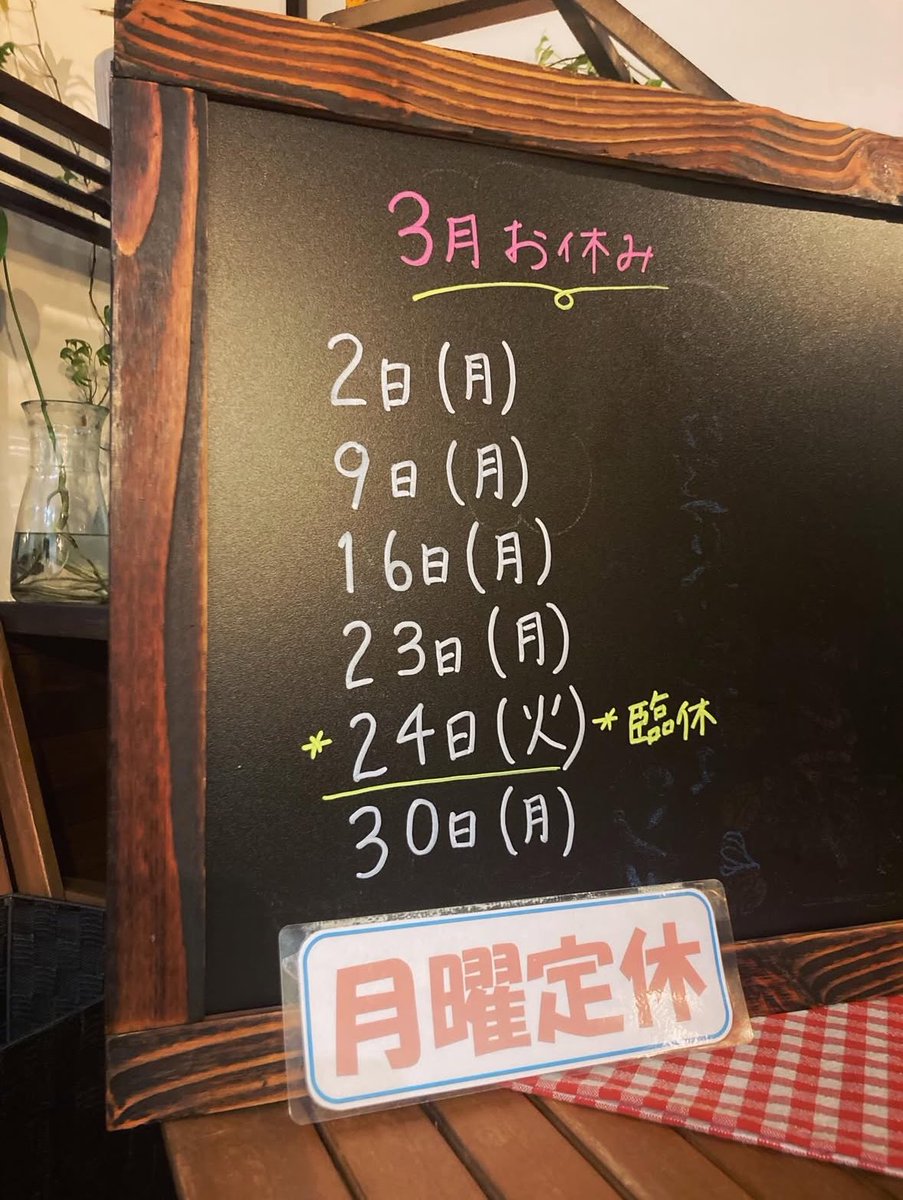 3月お休み
2日(月)
9日(月)
16日(月)
23日(月)
*24日(火)*臨休
30日(月)
月曜定休